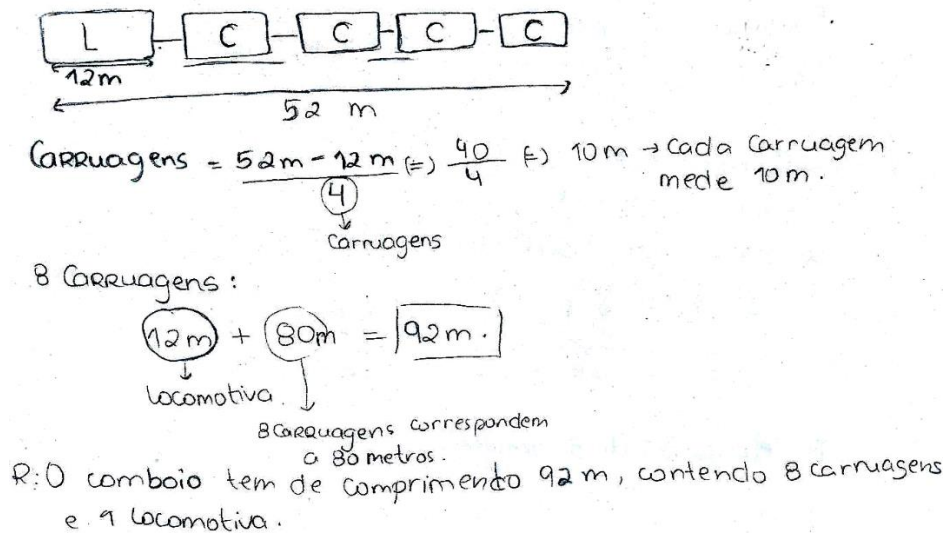 L C C C C
12m
52 m
Carruagens = 52m - 12m (=) 40 (=) 10m → Cada Carruagem
4 4 mede 10m.
Carruagens
8 Carruagens:
12m + 80m = 92m.
Locomotiva.
8 Carruagens correspondem
a 80 metros.
R: O comboio tem de comprimento 92m, contendo 8 carruagens
e 1 locomotiva.